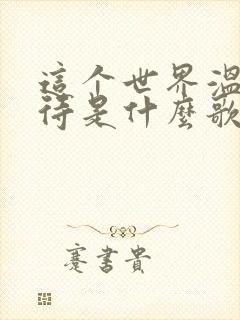 這个世界溫
待是什麼歌
蹇書貴